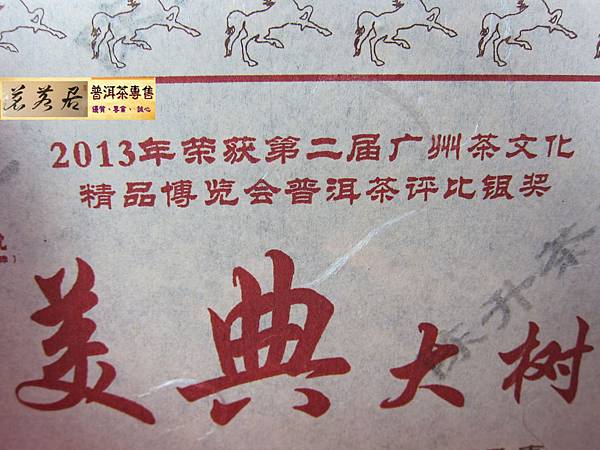 茗茗居 普洱茶專售
優質、專業、誠心
2013年荣获第二届广州茶文化
精品博览会普洱茶评比银奖
美典大树